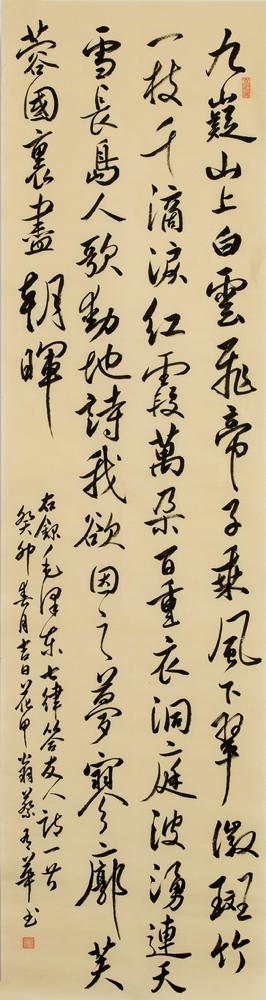 九嶷山上白雲飛帝子乘風下翠微斑竹
一枝千滴淚紅霞萬朵百重衣洞庭波湧連天
雪長島人歌動地詩我欲因之夢寥廓芙
蓉國裏盡朝暉
右錄毛澤東七律答友人詩一首
癸卯春月吉日花甲翁蔡華书